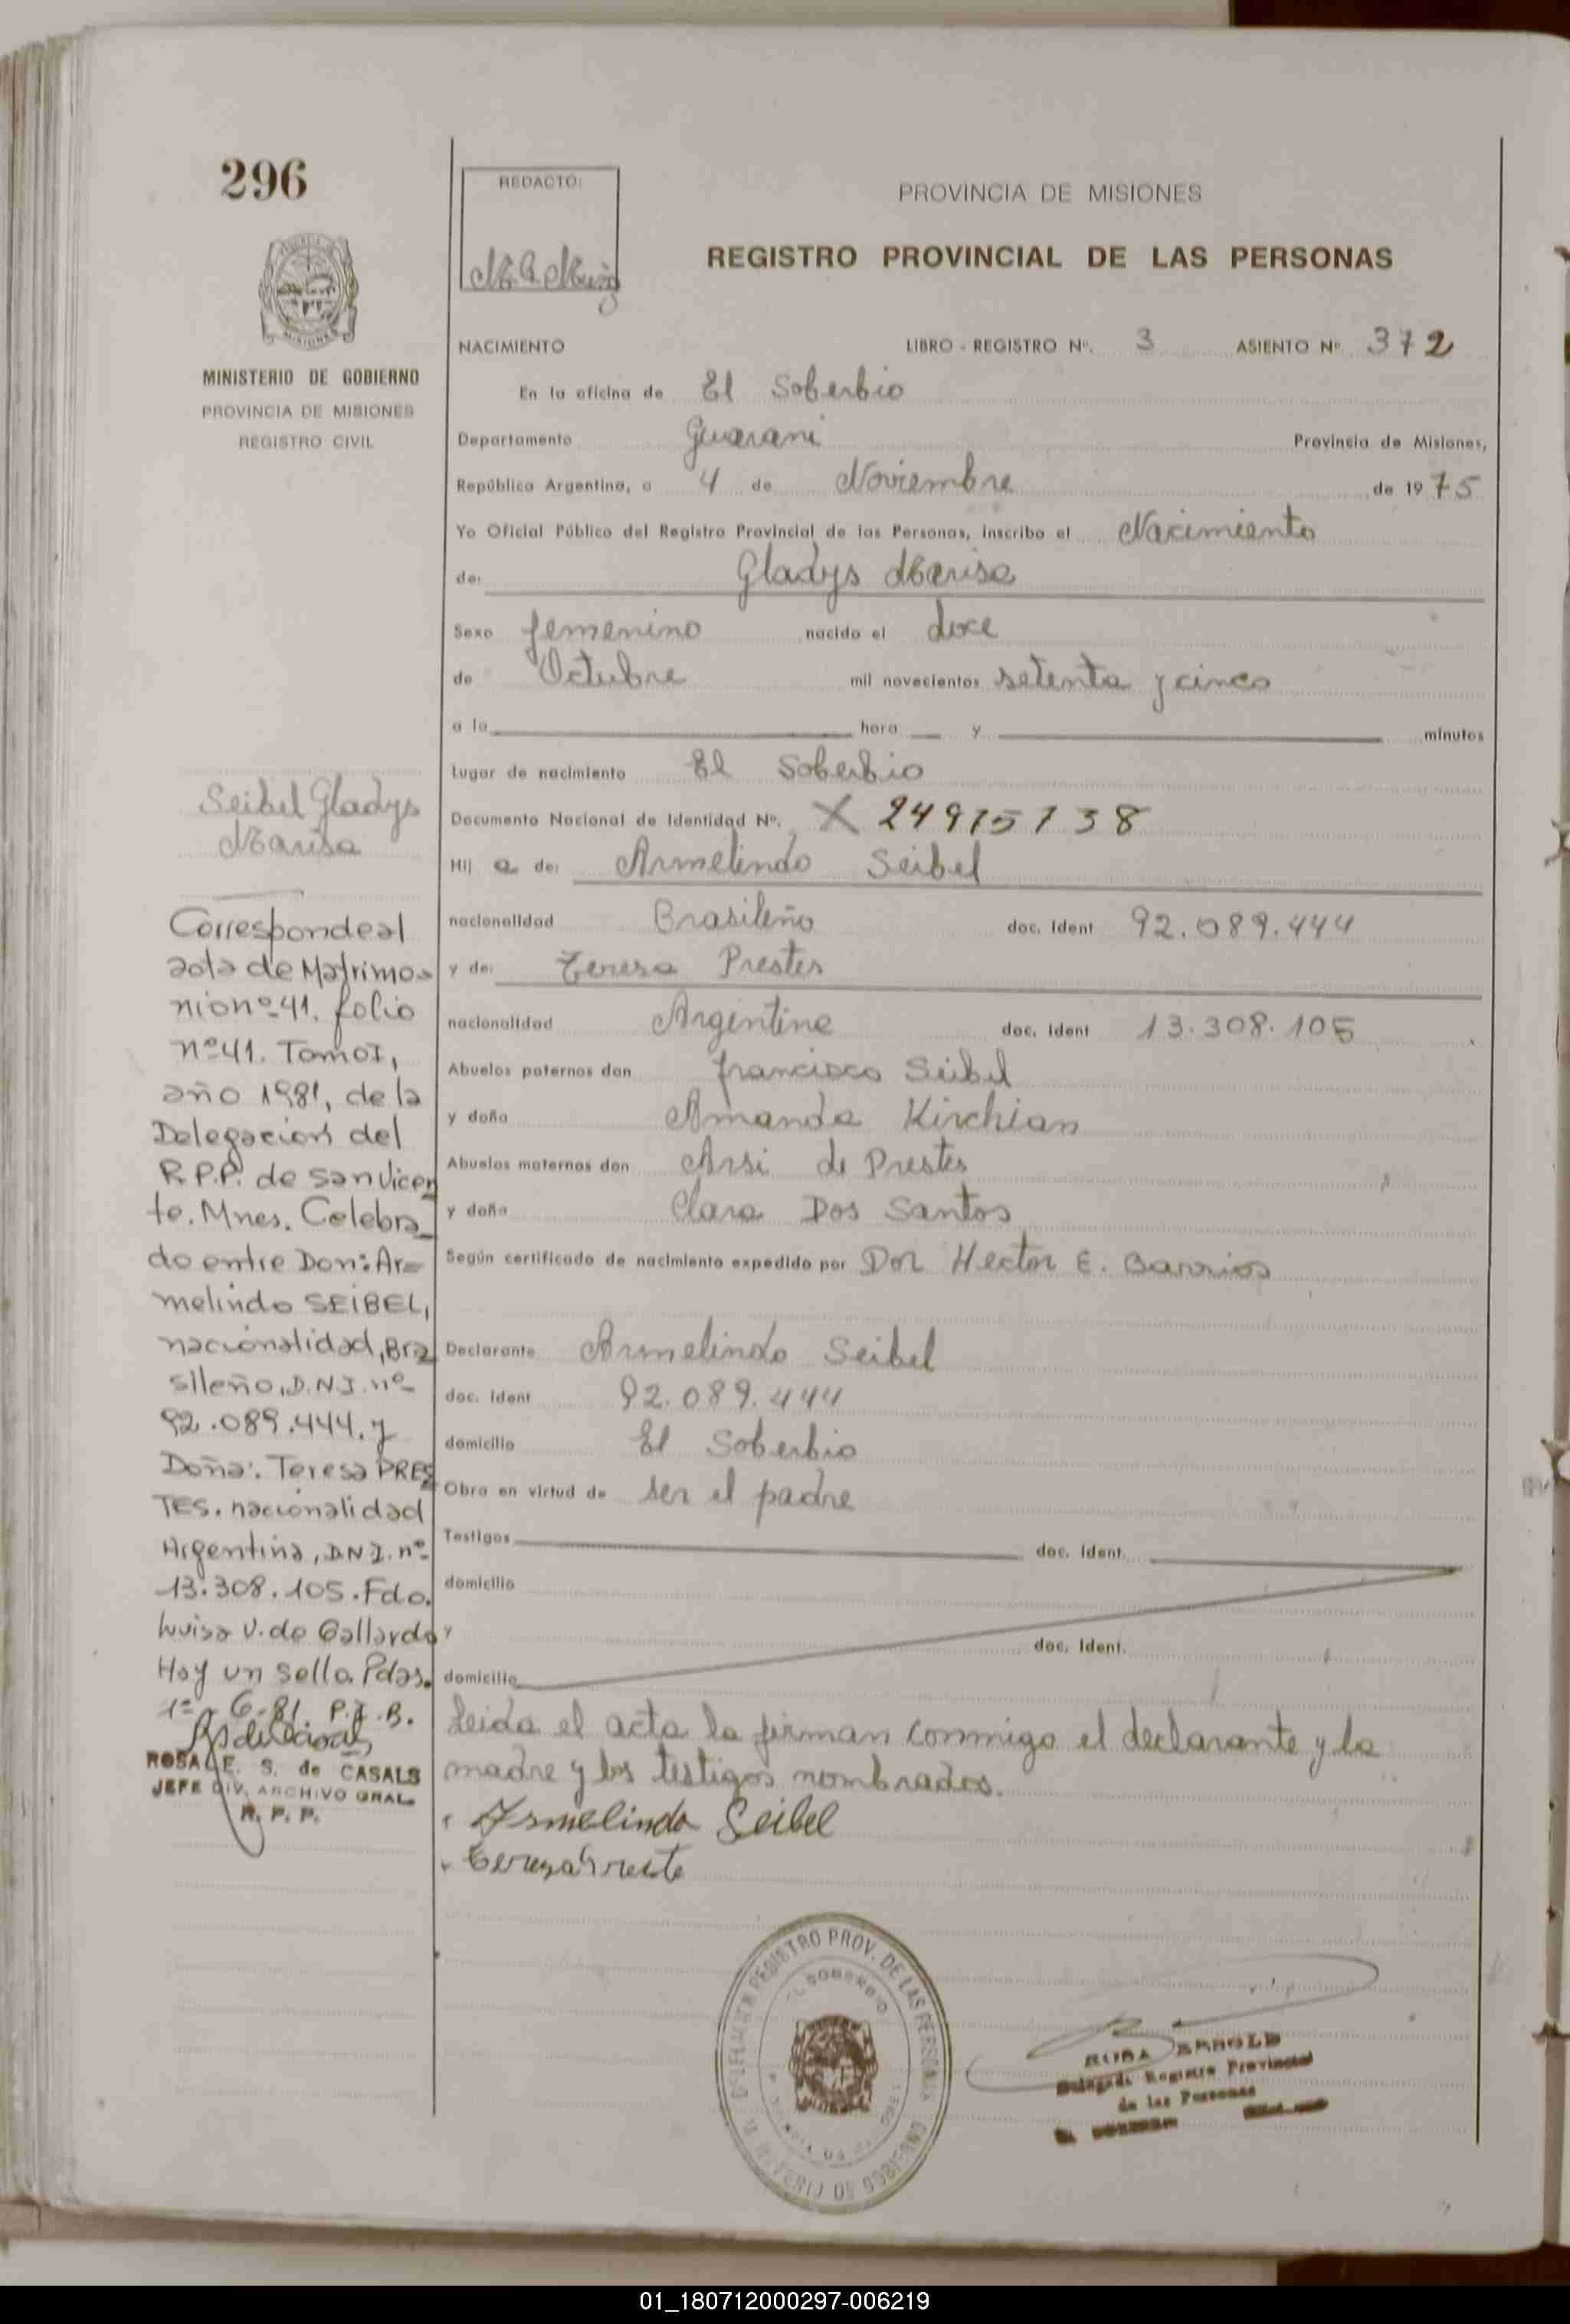 296
REDACTO:
PROVINCIA DE MISIONES
REGISTRO PROVINCIAL DE LAS PERSONAS
MINISTERIO DE GOBIERNO
PROVINCIA DE MISIONES
REGISTRO CIVIL
NACIMIENTO LIBRO - REGISTRO Nº. 3 ASIENTO Nº 372
En la oficina de El Soberbio
Departamento Guarani Provincia de Misiones,
República Argentina, a 4 de Noviembre de 1975
Yo Oficial Público del Registro Provincial de las Personas, inscribo el Nacimiento
de: Gladys Marisa
Sexo femenino nacido el doce
de Octubre mil novecientos setenta y cinco
a la hora y minutos
Lugar de nacimiento El Soberbio
Documento Nacional de Identidad Nº. X 24915738
Hij a de: Armelindo Seibel
nacionalidad Brasileño doc. ident 92.089.444
y de: Teresa Prestes
nacionalidad Argentina doc. ident 13.308.105
Abuelos paternos don Francisco Seibel
y doña Amanda Kirchian
Abuelos maternos don Arsi de Prestes
y doña Clara Dos Santos
Según certificado de nacimiento expedido por Don Hector E. Barrios
Declarante Armelindo Seibel
doc. ident 92.089.444
domicilio El Soberbio
Obra en virtud de ser el padre
Testigos doc. ident.
domicilio
y doc. ident.
domicilio
Leida el acta la firman conmigo el declarante y la
madre y los testigos nombrados.
Armelindo Seibel
Seibel Gladys
Marisa
Corresponde al
acta de Matrimo-
nio nº 41. folio
nº 41. Tomo I,
año 1981, de la
Delegacion del
R.P.P. de San Vicen
te. Mnes. Celebra_
do entre Don: Ar=
melindo SEIBEL,
nacionalidad, Bra
sileño, D.N.I. nº
92.089.444. y
Doña: Teresa PRES
TES. nacionalidad
Argentina, D.N.I. nº
13.308.105. Fdo.
Luisa V. de Gallardo
Hay un sello. Pdas.
1º-6-81. P.I.B.
ROSA E. S. de CASALS
JEFE DIV. ARCHIVO GRAL.
R. P. P.
REGISTRO PROV. DE LAS PERSONAS
EL SOBERBIO
Delegada Registro Provincial
de las Personas
01_180712000297-006219